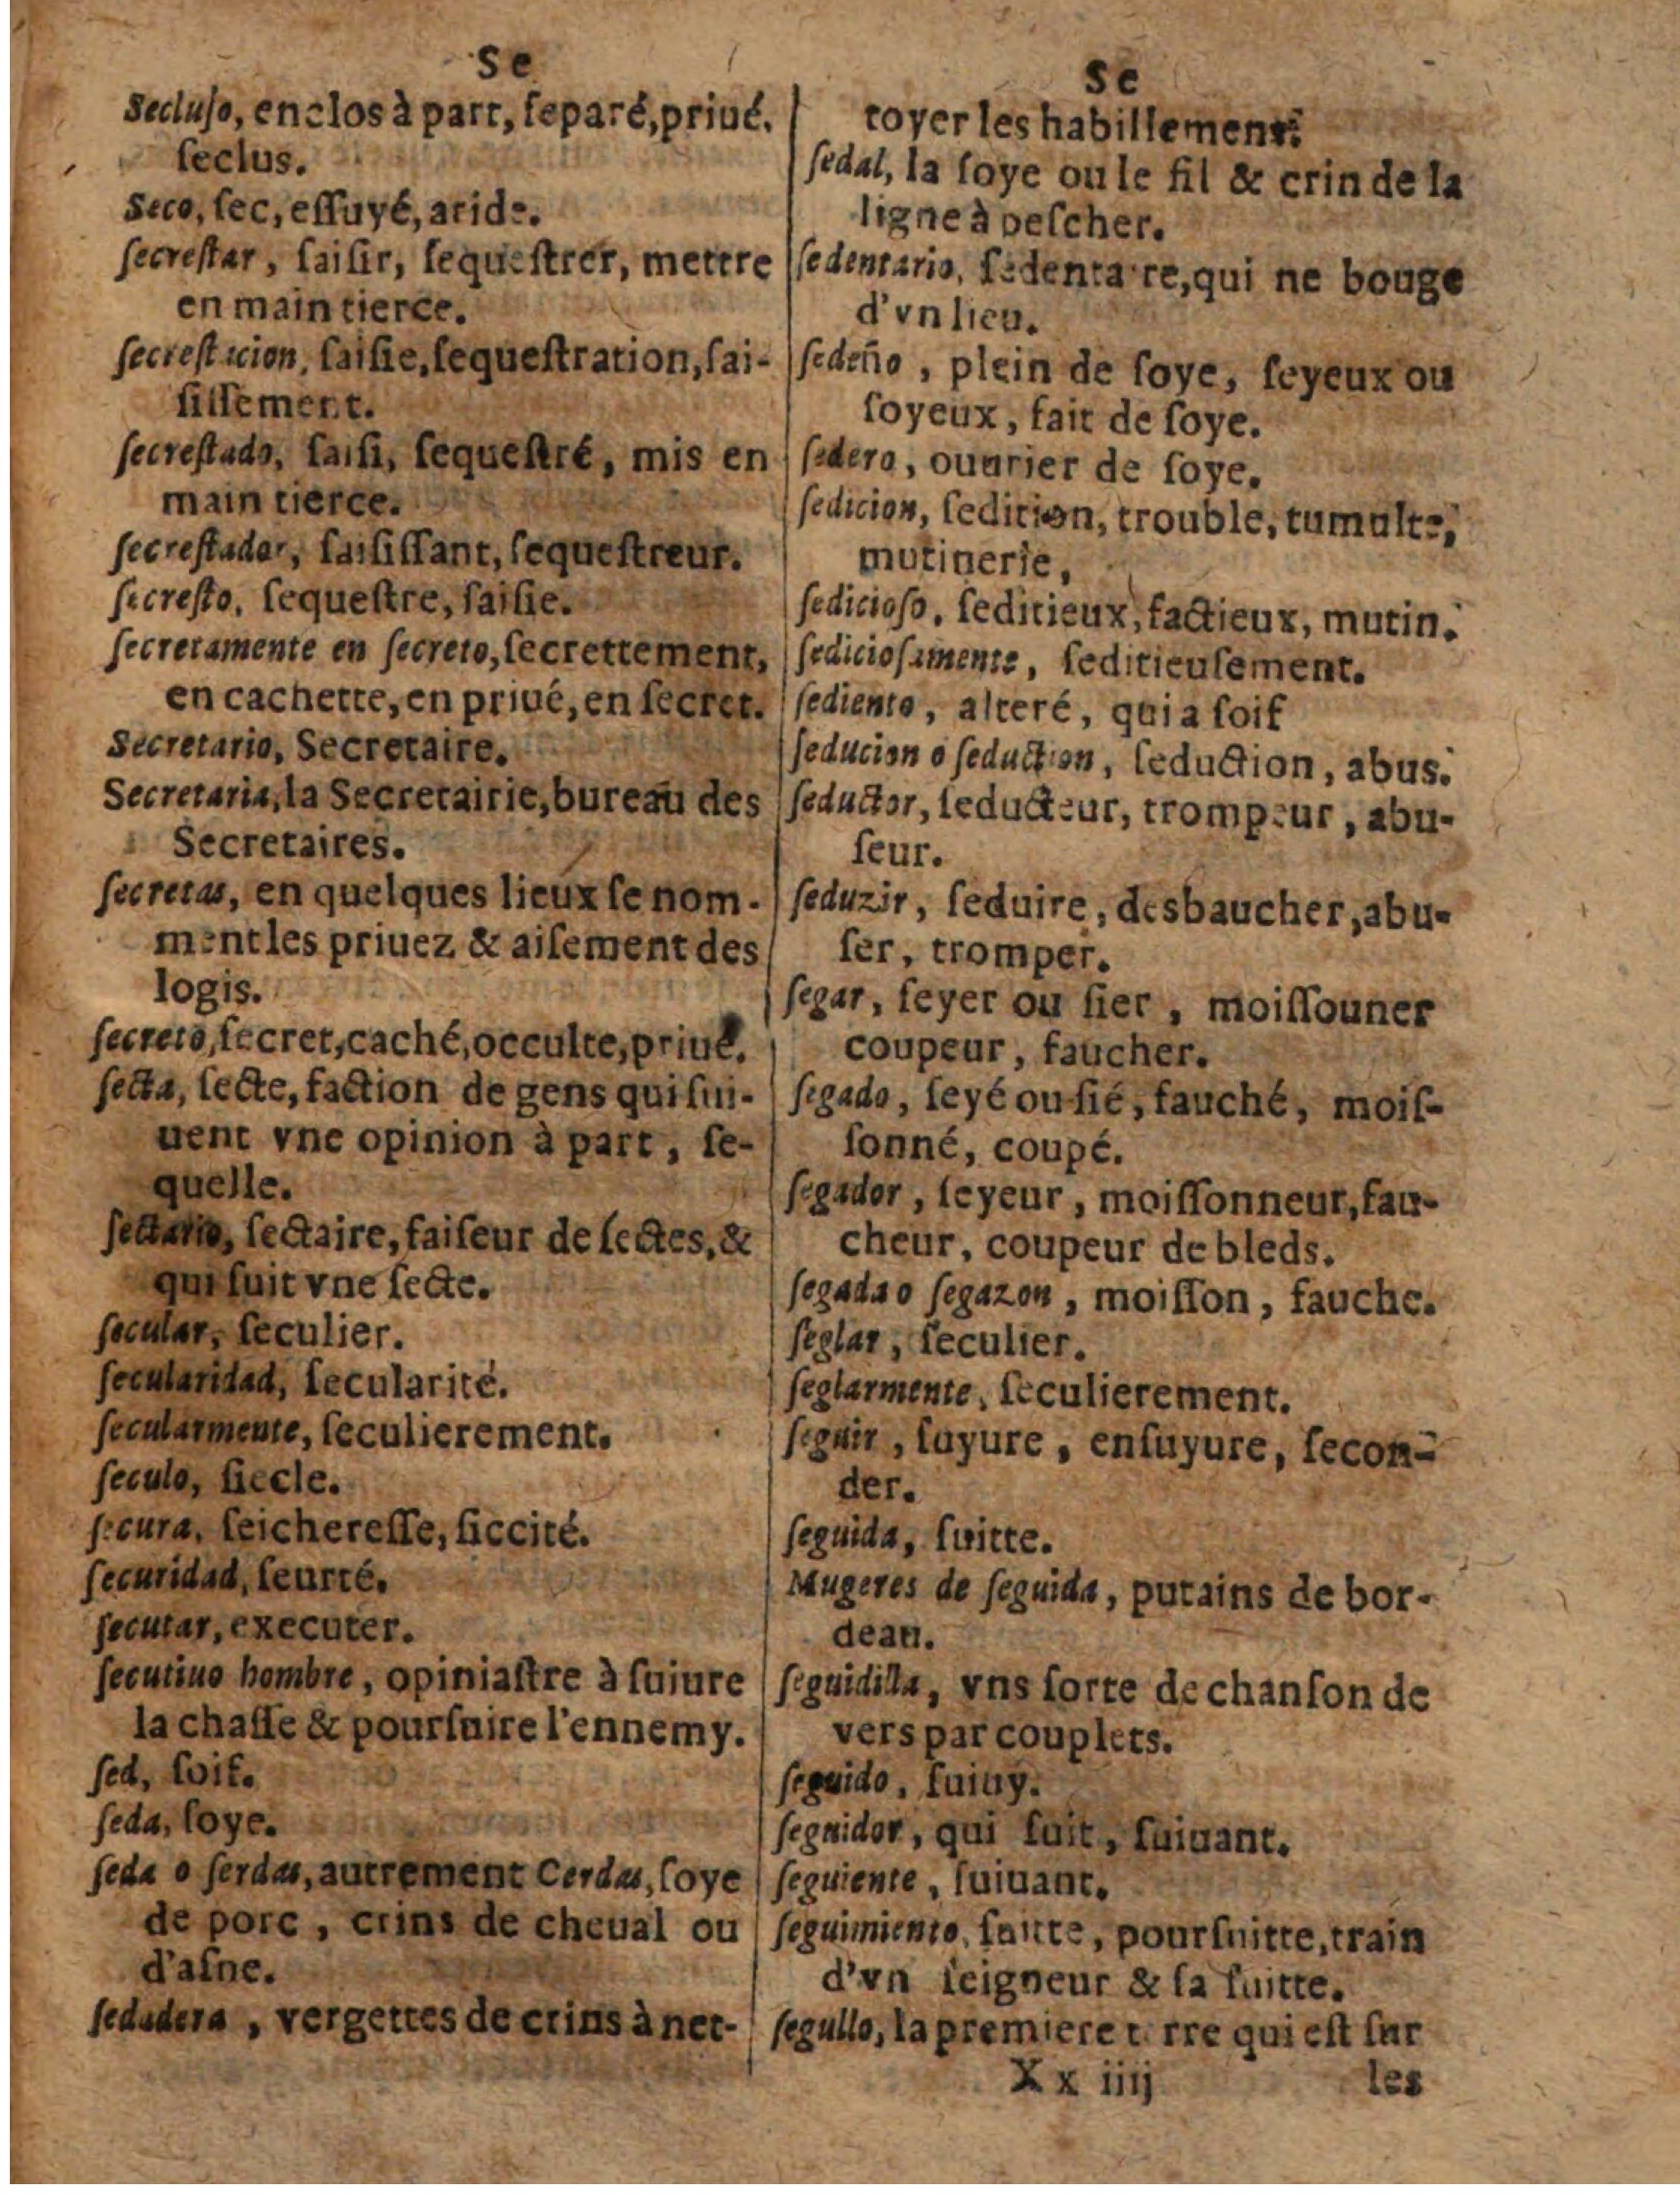 Se
Secluſo, enclos à part, ſeparé, priué.
ſeclus.
Seco, ſec, eſſuyé, aride.
ſecreſtar, ſaiſir, ſequeſtrer, mettre
en main tierce.
ſecreſtacion, ſaiſie, ſequeſtration, ſai-
ſiſſement.
ſecreſtado, ſaiſi, ſequeſtré, mis en
main tierce.
ſecreſtador, ſaiſiſſant, ſequeſtreur.
ſecreſto, ſequeſtre, ſaiſie.
ſecretamente en ſecreto, ſecrettement,
en cachette, en priué, en ſecret.
Secretario, Secretaire.
Secretaria, la Secretairie, bureau des
Secretaires.
ſecretas, en quelques lieux ſe nom-
ment les priuez & aiſement des
logis.
ſecreto, ſecret, caché, occulte, priué.
ſecta, ſecte, faction de gens qui ſui-
uent vne opinion à part, ſe-
quelle.
ſectario, ſectaire, faiſeur de ſectes, &
qui ſuit vne ſecte.
ſecular, ſeculier.
ſecularidad, ſecularité.
ſecularmente, ſeculierement.
ſeculo, ſiecle.
ſecura, ſeichereſſe, ſiccité.
ſecuridad, ſeurté.
ſecutar, executer.
ſecutiuo hombre, opiniaſtre à ſuiure
la chaſſe & pourſuire l'ennemy.
ſed, ſoif.
ſeda, ſoye.
ſeda o ſerdas, autrement Cerdas, ſoye
de porc, crins de cheual ou
d'aſne.
ſedadera, vergettes de crins à net-
Se
toyer les habillements
ſedal, la ſoye ou le fil & crin de la
ligne à peſcher.
ſedentario, ſedentaire, qui ne bouge
d'vn lieu.
ſedeño, plein de ſoye, ſeyeux ou
ſoyeux, fait de ſoye.
ſedero, ouurier de ſoye.
ſedicion, ſedition, trouble, tumulte,
mutinerie,
ſedicioſo, ſeditieux, factieux, mutin.
ſedicioſamente, ſeditieuſement.
ſediento, alteré, qui a ſoif
ſeducion o ſeduction, ſeduction, abus.
ſeductor, ſeducteur, trompeur, abu-
ſeur.
ſeduzir, ſeduire, desbaucher, abu-
ſer, tromper.
ſegar, ſeyer ou ſier, moiſſouner
coupeur, faucher.
ſegado, ſeyé ou ſié, fauché, moiſ-
ſonné, coupé.
ſegador, ſeyeur, moiſſonneur, fau-
cheur, coupeur de bleds.
ſegada o ſegazon, moiſſon, fauche.
ſeglar, ſeculier.
ſeglarmente, ſeculierement.
ſeguir, ſuyure, enſuyure, ſecon-
der.
ſeguida, ſuitte.
Mugeres de ſeguida, putains de bor-
deau.
ſeguidilla, vns ſorte de chanſon de
vers par couplets.
ſeguido, ſuiuy.
ſeguidor, qui ſuit, ſuiuant.
ſeguiente, ſuiuant.
ſeguimiento, ſuitte, pourſuitte, train
d'vn ſeigneur & ſa ſuitte.
ſegullo, la premiere terre qui eſt ſur
Xx iiij les